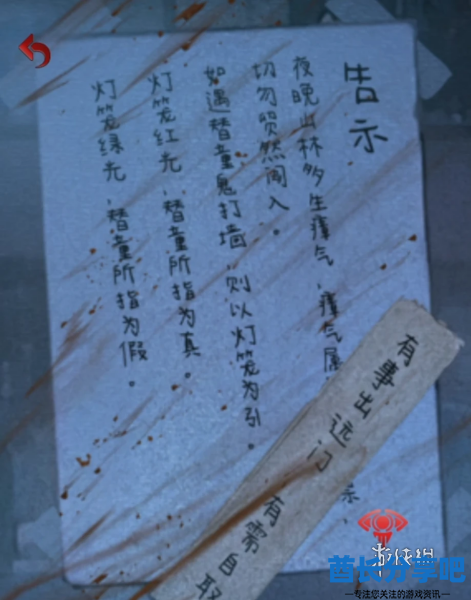 告示
夜晚山林多生瘴气,瘴气属
切勿贸然闯入。
如遇替童鬼打墙,则以灯笼为引。
灯笼红光,替童所指为真。
灯笼绿光,替童所指为假。
有事出远门
有需自取
酋长分享吧
—专注您关注的游戏资讯—